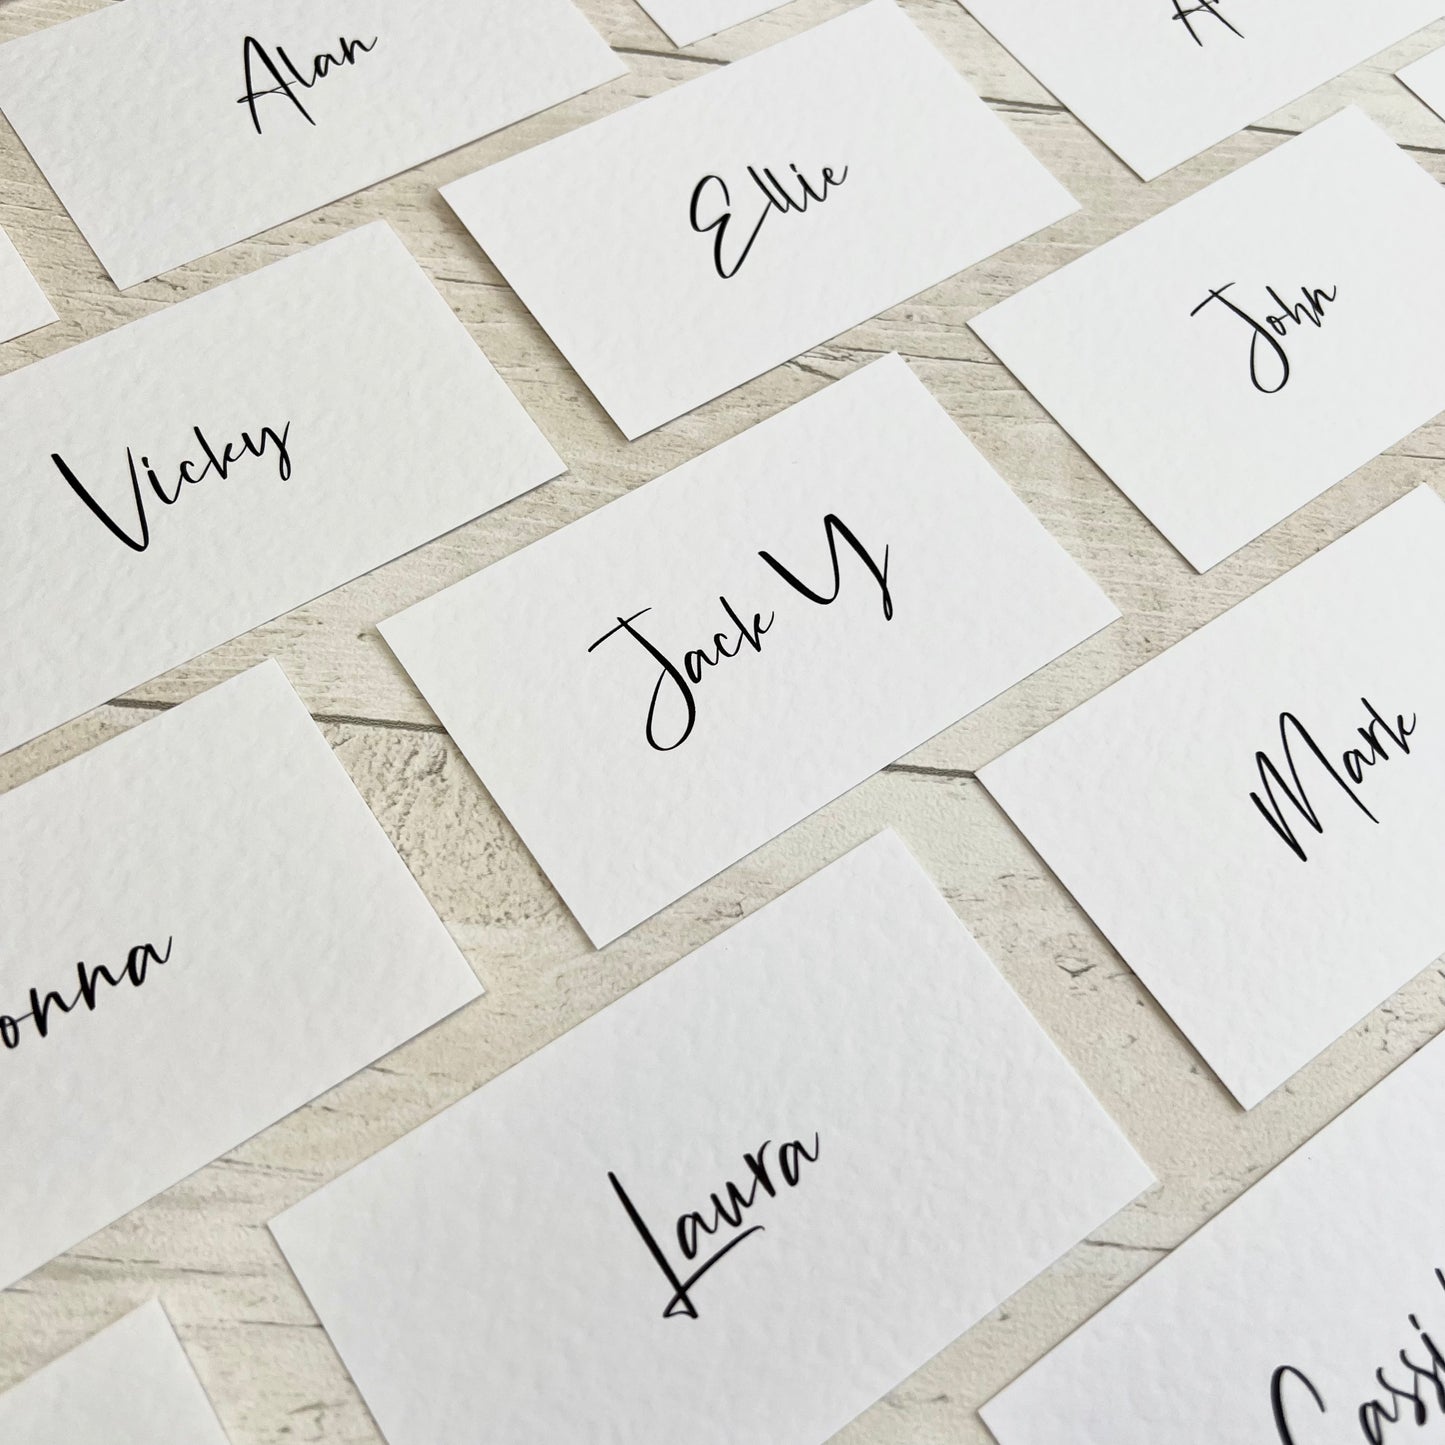 Alan
Ellie
John
Vicky
Jack Y
Mark
onna
Laura
Cassi